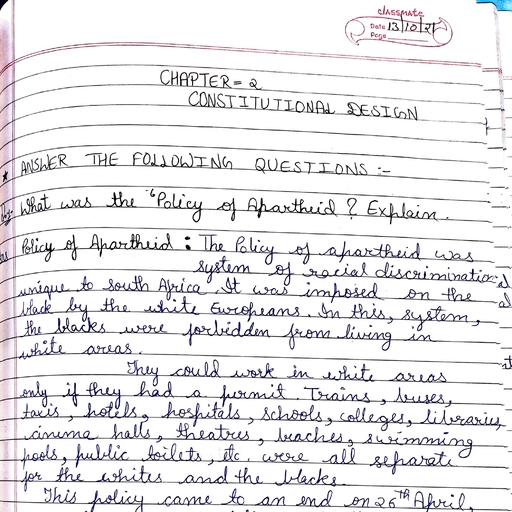 classmate
Date 13/10/21
Page
CHAPTER = 2
CONSTITUTIONAL DESIGN
* ANSWER THE FOLLOWING QUESTIONS :-
What was the "Policy of Apartheid ? Explain.
Policy of Apartheid : The Policy of apartheid was
system of racial discrimination
unique to south Africa. It was imposed on the
black by the white Europeans. In this, system,
the blacks were forbidden from living in
white areas.
They could work in white areas
only if they had a permit. Trains, buses,
taxis, hotels, hospitals, schools, colleges, libraries,
cinema halls, theatres, beaches, swimming
pools, public toilets, etc. were all separate
for the whites and the blacks.
This policy came to an end on 26th April,